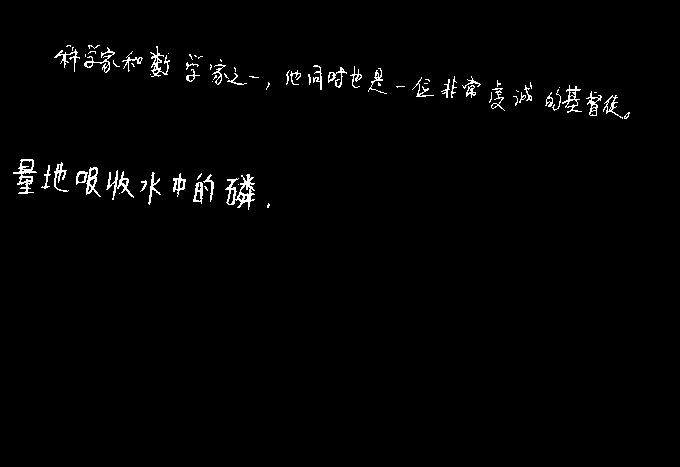 科学家和数学家之一，他同时也是一位非常虔诚的基督徒。
量地吸收水中的磷．